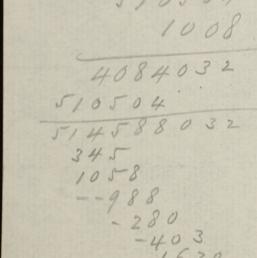 1008
4084032
510504
514588032
345
1058
--988
-280
-403